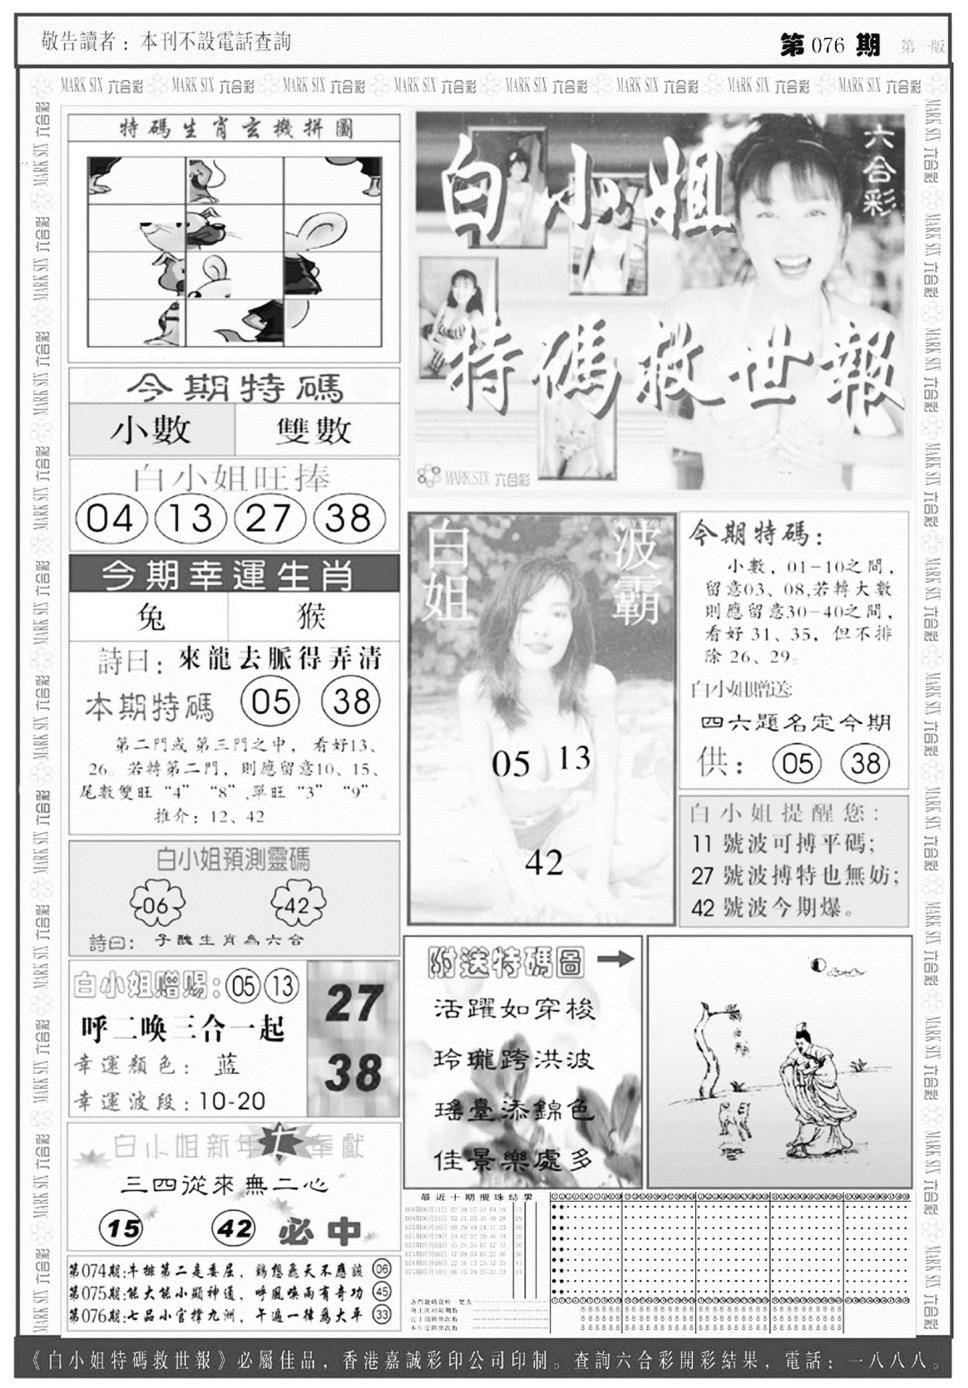 敬告讀者：本刊不設電話查詢
第076期
第一版
MARK SIX 六合彩 MARK SIX 六合彩 MARK SIX 六合彩 MARK SIX 六合彩 MARK SIX 六合彩 MARK SIX 六合彩 MARK SIX 六合彩 MARK SIX 六合彩
特碼生肖玄機拼圖
今期特碼
小數 雙數
白小姐旺捧
04 13 27 38
今期幸運生肖
兔 猴
詩曰：來龍去脈得弄清
本期特碼 05 38
第二門或第三門之中，看好13、
26。若轉第二門，則應留意10、15、
尾數雙旺“4”“8”,單旺“3”“9”。
推介：12、42
白小姐預測靈碼
06 42
詩曰：子醜生肖為六合
白小姐赠赐：05 13
呼二唤三合一起
幸運顏色：蓝
幸運波段：10-20
27
38
白小姐新年七奉獻
三四從來無二心
15 42 必中
第074期:牛排第二是委屈，鷄想飛天不應該 06
第075期:能大能小顯神通，呼風喚雨有奇功 45
第076期:七品小官撑九洲，午遍一律為大平 33
六合彩
白小姐
特碼救世報
MARK SIX 六合彩
白姐
波霸
05 13
42
今期特碼：
小數，01-10之間，
留意03、08,若轉大數
則應留意30-40之間，
看好31、35，但不排
除26、29。
白小姐贈送:
四六題名定今期
供：05 38
白小姐提醒您：
11 號波可搏平碼；
27 號波搏特也無妨；
42 號波今期爆。
附送特碼圖
活躍如穿梭
玲瓏跨洪波
瑤臺添錦色
佳景樂處多
最近十期攪珠結果
《白小姐特碼救世報》必屬佳品，香港嘉誠彩印公司印制。查詢六合彩開彩結果，電話：一八八八。